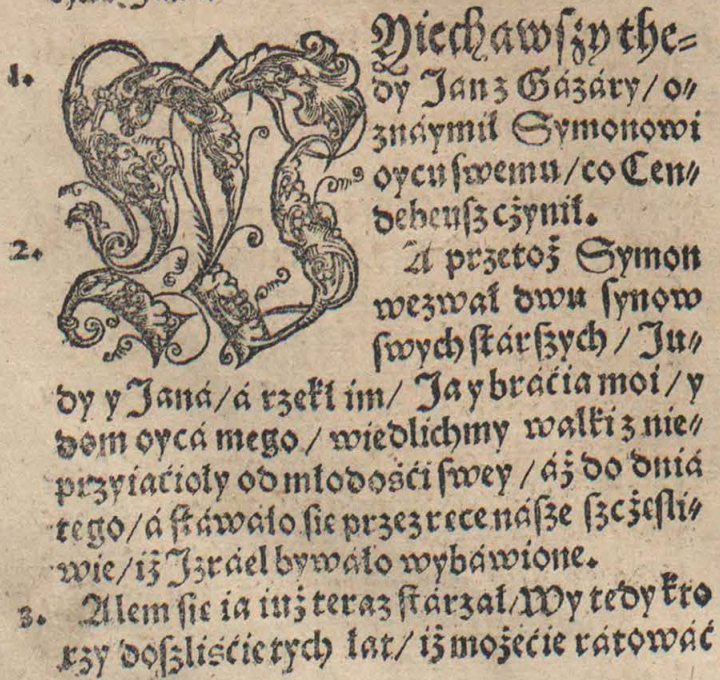 1. WYiechawſzy the⸗
dy Jan z Gázáry / o⸗
znáymił Symonowi
oycu ſwemu / co Cen⸗
debeuſz cżynił.
2. A przetoż Symon
wezwał dwu ſynow
ſwych ſtárſzych / Ju⸗
dy y Janá / á rzekł im / Ja y bráćia moi / y
dom oycá mego / wiedlichmy walki z nie⸗
przyiaćioły od młodośći ſwey / áż do dniá
tego / á ſtáwáło ſie przez rece náſze ſzcżeſli⸗
wie / iż Jzráel bywáło wybáwione.
3. Alem ſie ia iuż teraz ſtárzał / Wy tedy kto
rzy doſzliśćie tych lat / iż możećie rátowáć